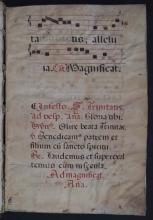 ta tus, alleiu
ia. Magnificat.
In festo S. Trinitatis
ad vesp. Aña. Gloria tibi
Hym. Nunc beata Trinitas
℣. Benedicamus patrem et
filium cũ sancto spiritu.
℟. Laudemus et superexal
temus eum in secula.
Ad magnificat.
Aña.